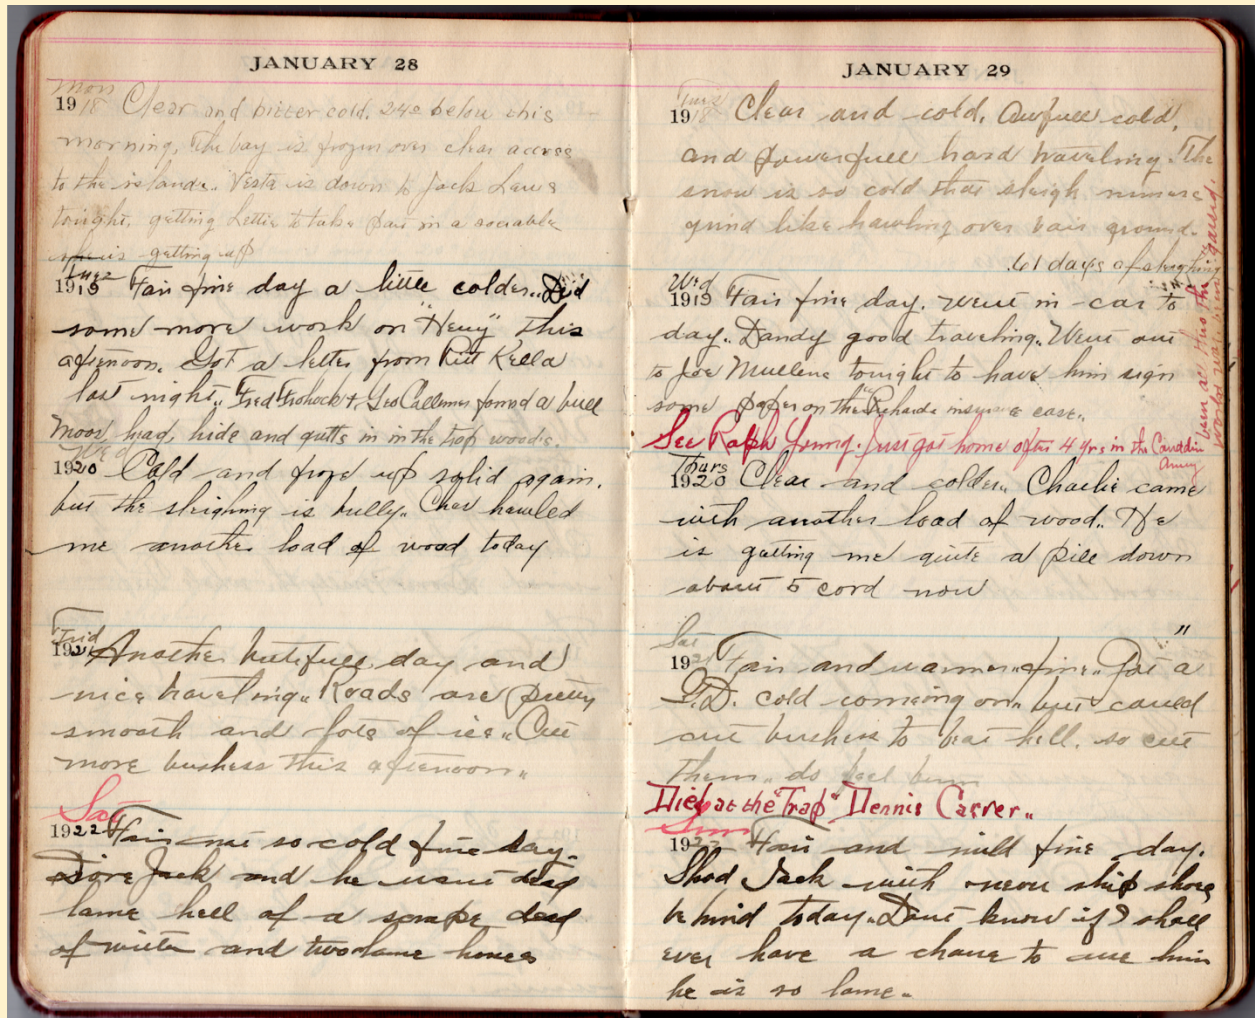 JANUARY 28
Mon
1918 Clear and bitter cold. 24° below this
morning. The bay is frozen over clear across
to the islands. Vesta is down to Jack Laws
tonight, getting Lettie to take part in a sociable
she is getting up
Tues
1919 Fair fine day a little colder.. Did
some more work on "Henry" this
afternoon. Got a letter from Rut Kella
last night.. Fred Frohock + Geo Callemer found a bull
Moos head, hide and gutts in in the top woods.
Wed
1920 Cold and froze up solid again.
but the sleighing is bully.. Chas hawled
me another load of wood today
Frid
1921 Another butifull day and
nice traveling.. Roads are pretty
smooth and lots of ice.. Cut
more bushess this afternoon..
Sat
1922 Fair not so cold fine day.
Jack and he went
lame hell of a scrape dead
of winter and two lame horses
JANUARY 29
Tues
1918 Clear and cold. Awfull cold.
and powerfull hard traveling. The
snow is so cold that sleigh runners
grind like hawling over bair ground.
61 days of sleighing
Wed
1919 Fair fine day. went in car to
day.. Dandy good traveling.. Went out
to Joe Mullens tonight to have him sign
some paper on the Richards insurance case..
See Ralph Young. Just got home after 4 yrs in the Canadain
Army
been all thro the
world war. being gassed.
Thurs
1920 Clear and colder.. Charlie came
with another load of wood.. He
is getting me quite a pile down
about 5 cord now
Sat
1921 Fair and warmer.. fine.. Got a
G.D. cold comeing on.. but could
cut bushess to beat hell. so cut
them..
Died at the "Trap" Dennis Carver..
Sun
1922 Fair and mild fine day.
Shod Jack with neverslip shoes
behind today.. Dont know if I shall
ever have a chance to use him
he is so lame..